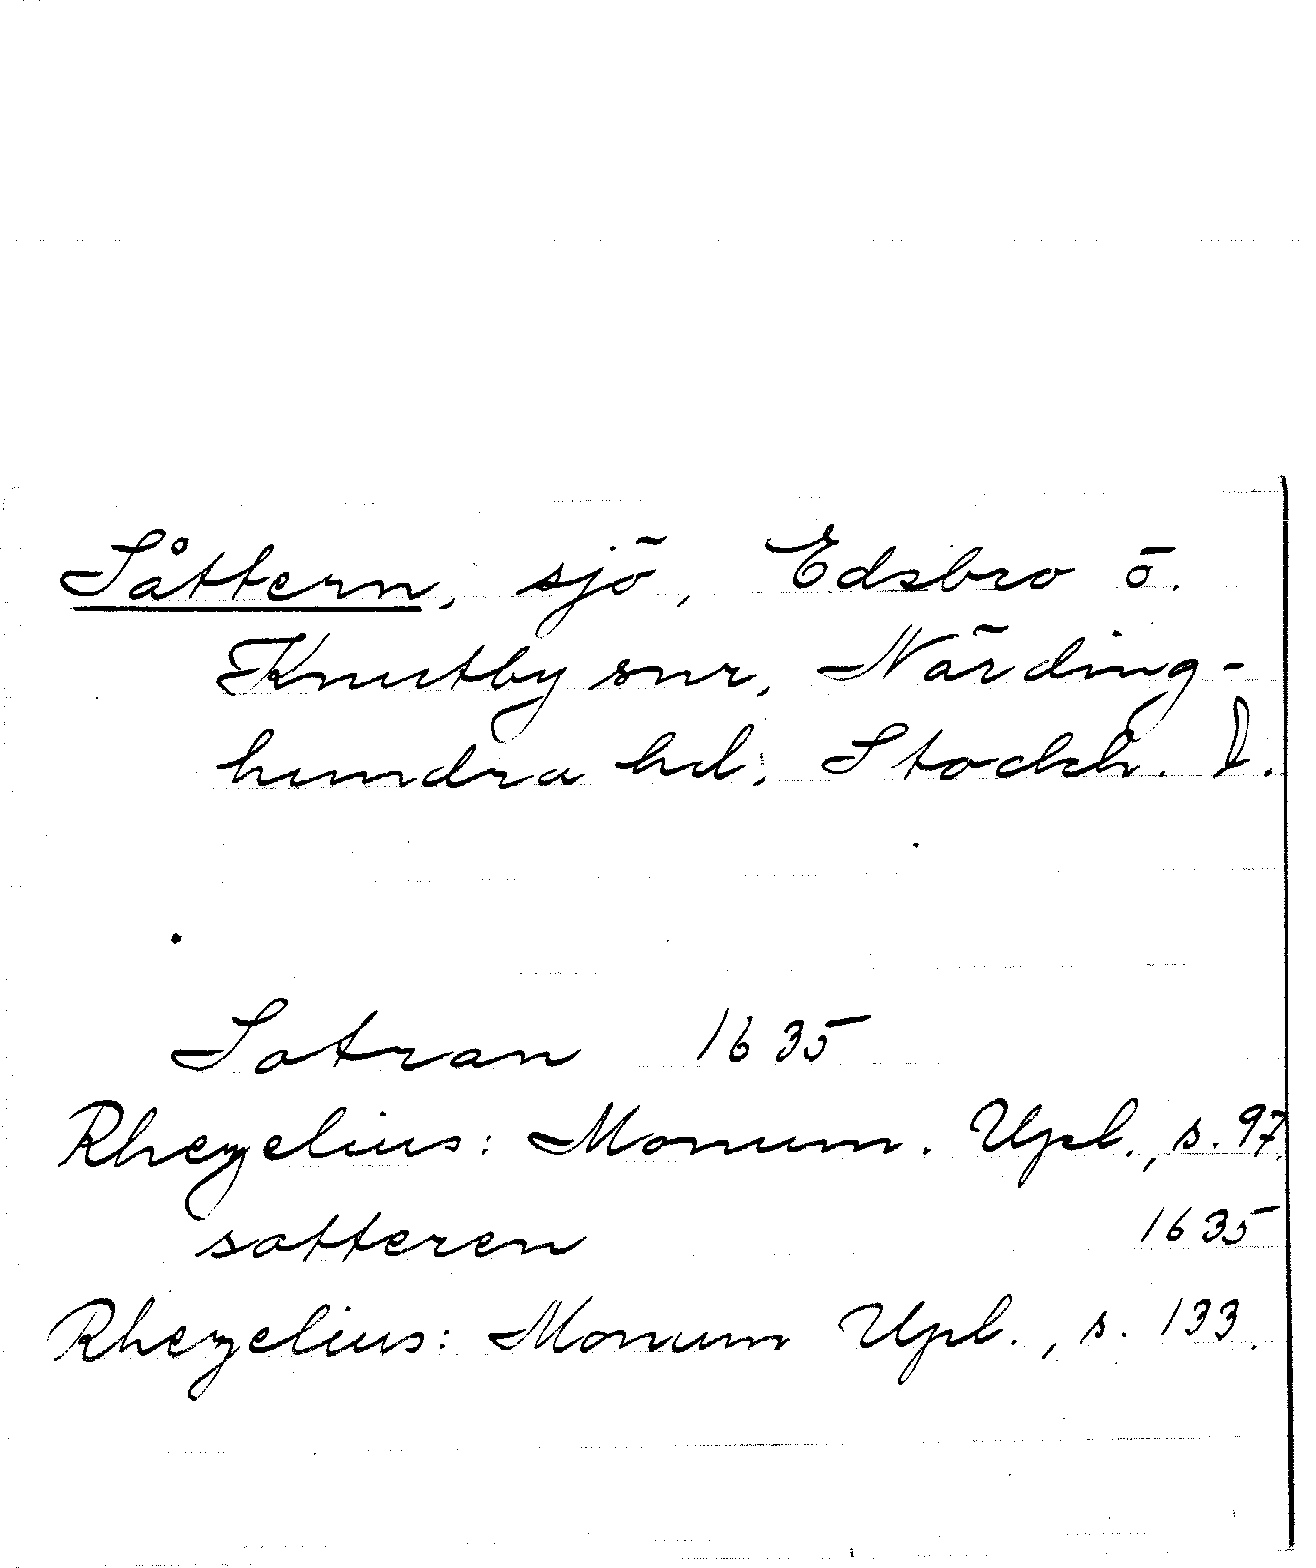 Såttern, sjö, Edsbro ö.
Knutby snr, Närding-
hundra hd, Stockh. l.
Sotran 1635
Rhezelius: Monum. Upl., s. 97
sotteren 1635
Rhezelius: Monum Upl., s. 133.